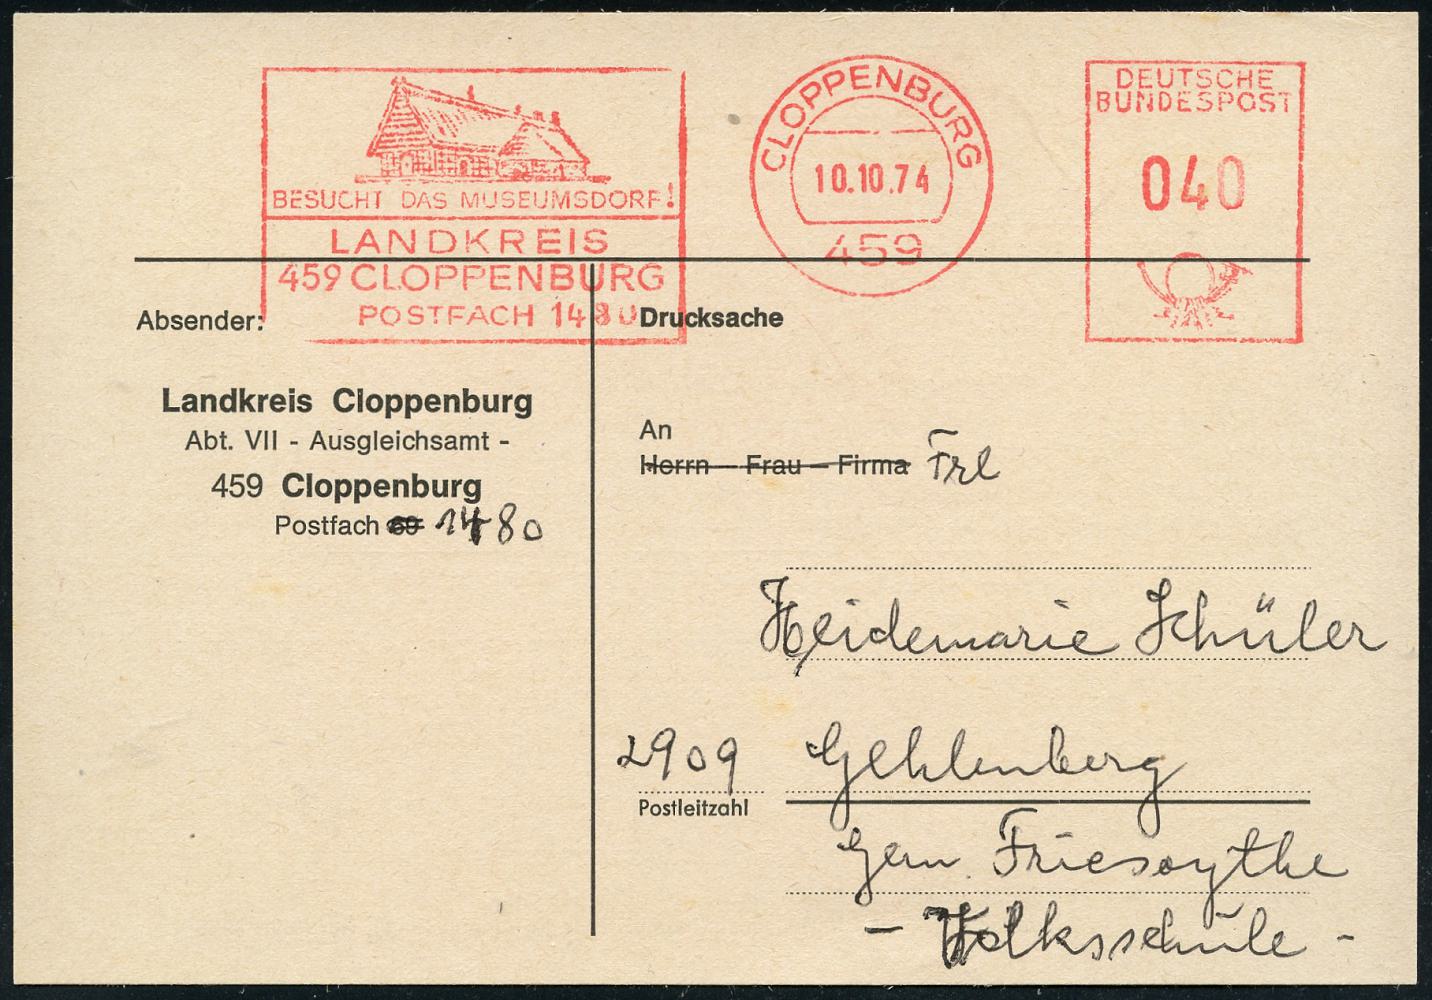 BESUCHT DAS MUSEUMSDORF!
LANDKREIS
459 CLOPPENBURG
POSTFACH 1480
CLOPPENBURG
10.10.74
459
DEUTSCHE
BUNDESPOST
040
Absender:
Landkreis Cloppenburg
Abt. VII - Ausgleichsamt -
459 Cloppenburg
Postfach 69 1480
Drucksache
An
Herrn - Frau - Firma Frl
Heidemarie Schüler
2909 Gehlenberg
Postleitzahl
Gem. Friesoythe
- Volksschule -